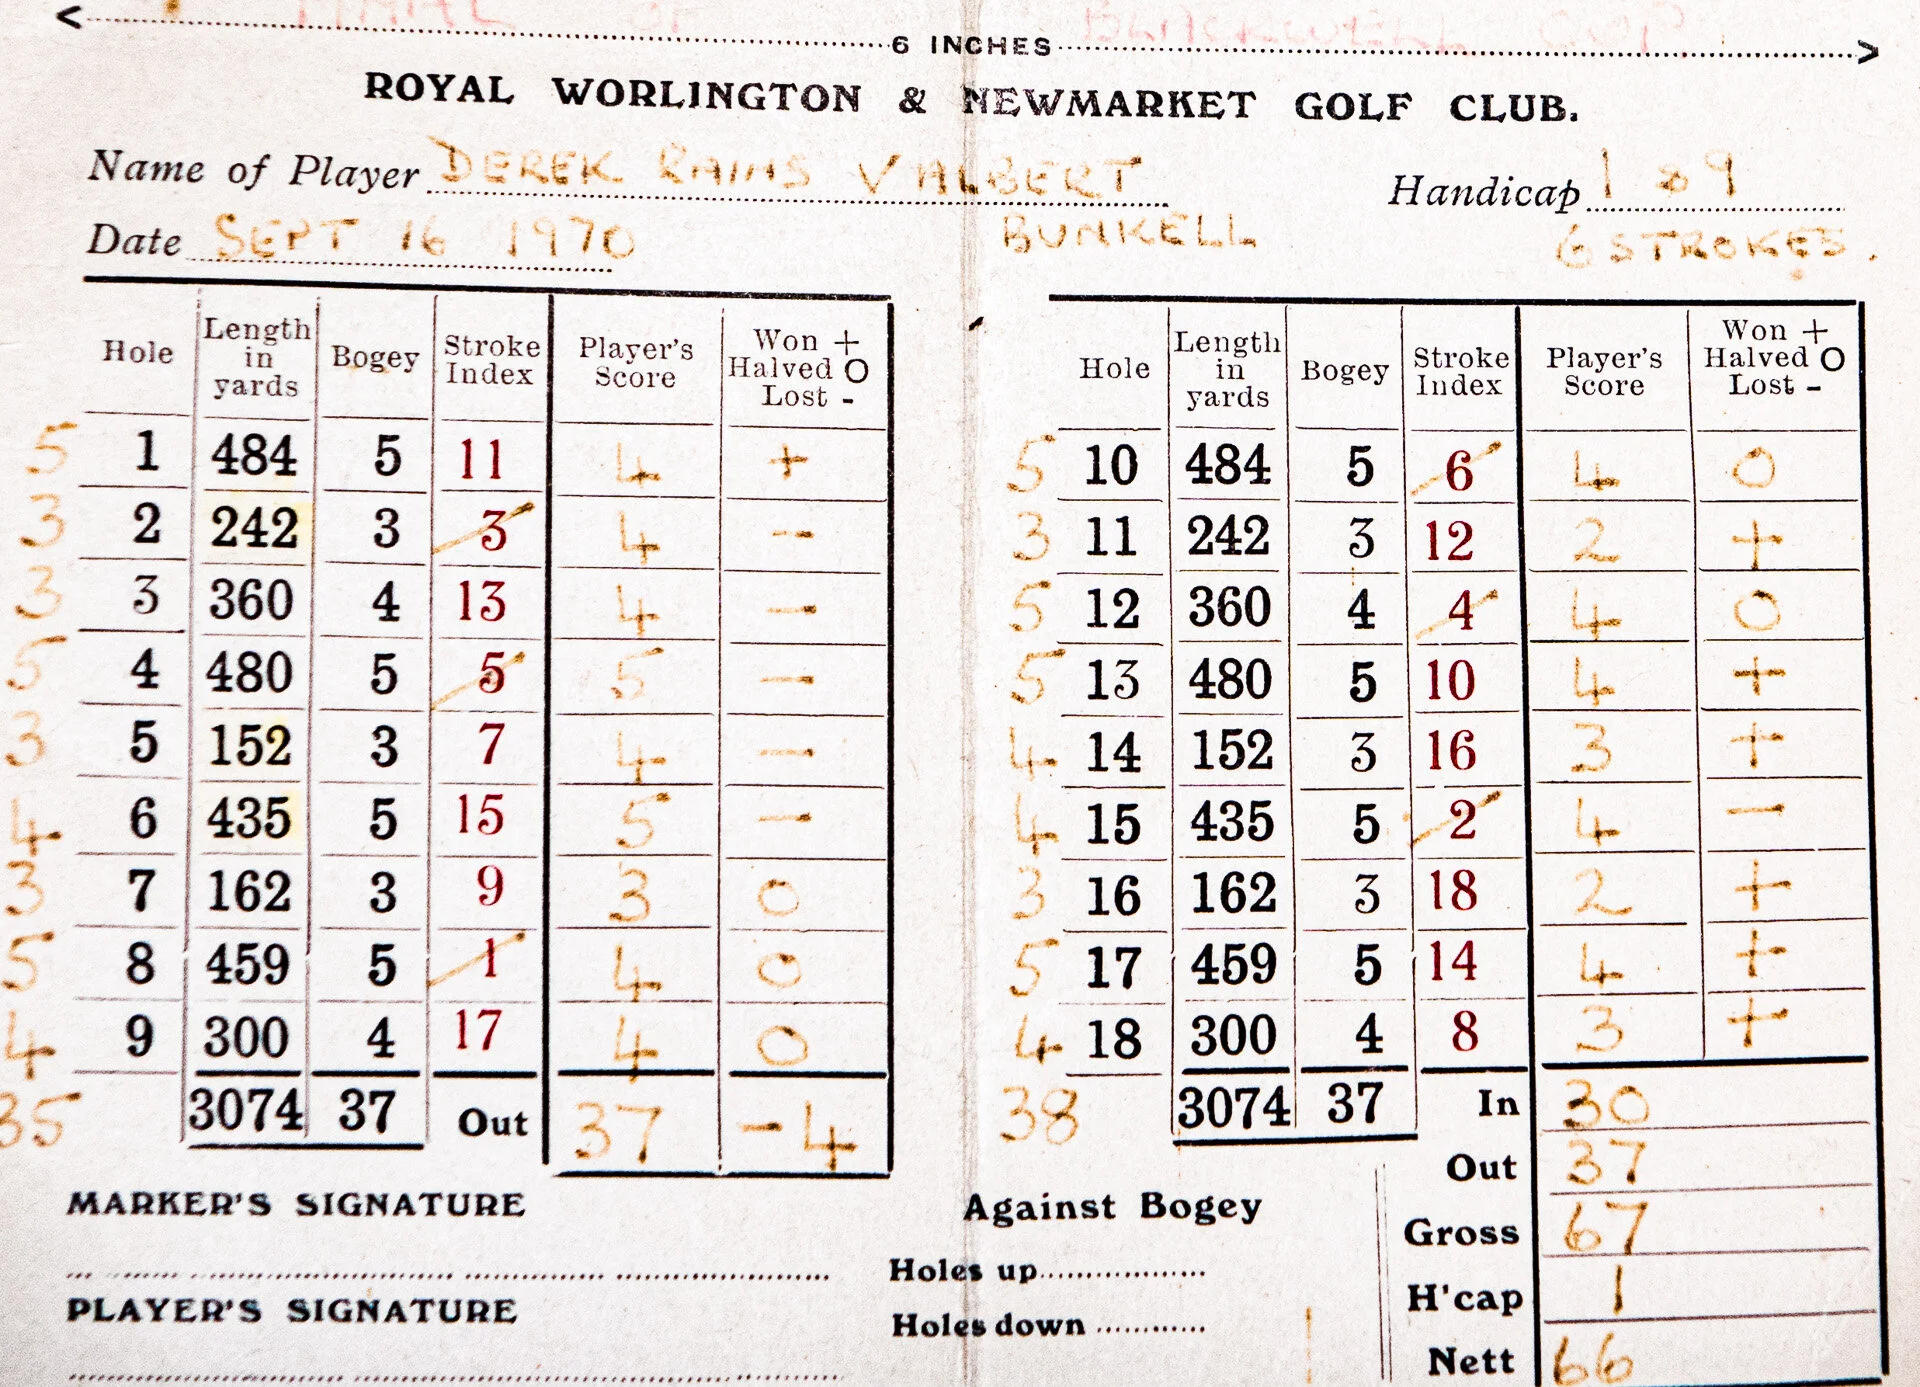 FINAL OF BLACKWELL CUP.
6 INCHES
ROYAL WORLINGTON & NEWMARKET GOLF CLUB.
Name of Player DEREK RAINS V ALBERT BUNKELL
Handicap 1 & 9
6 STROKES.
Date SEPT 16 1970
Hole Length in yards Bogey Stroke Index Player's Score Won + Halved O Lost -
5 1 484 5 11 4 +
3 2 242 3 3 4 -
3 3 360 4 13 4 -
5 4 480 5 5 5 -
3 5 152 3 7 4 -
4 6 435 5 15 5 -
3 7 162 3 9 3 0
5 8 459 5 1 4 0
4 9 300 4 17 4 0
35 3074 37 Out 37 -4
Hole Length in yards Bogey Stroke Index Player's Score Won + Halved O Lost -
5 10 484 5 6 4 0
3 11 242 3 12 2 +
5 12 360 4 4 4 0
5 13 480 5 10 4 +
4 14 152 3 16 3 +
4 15 435 5 2 4 -
3 16 162 3 18 2 +
5 17 459 5 14 4 +
4 18 300 4 8 3 +
38 3074 37 In 30
Out 37
Gross 67
H'cap 1
Nett 66
MARKER'S SIGNATURE
PLAYER'S SIGNATURE
Against Bogey
Holes up
Holes down